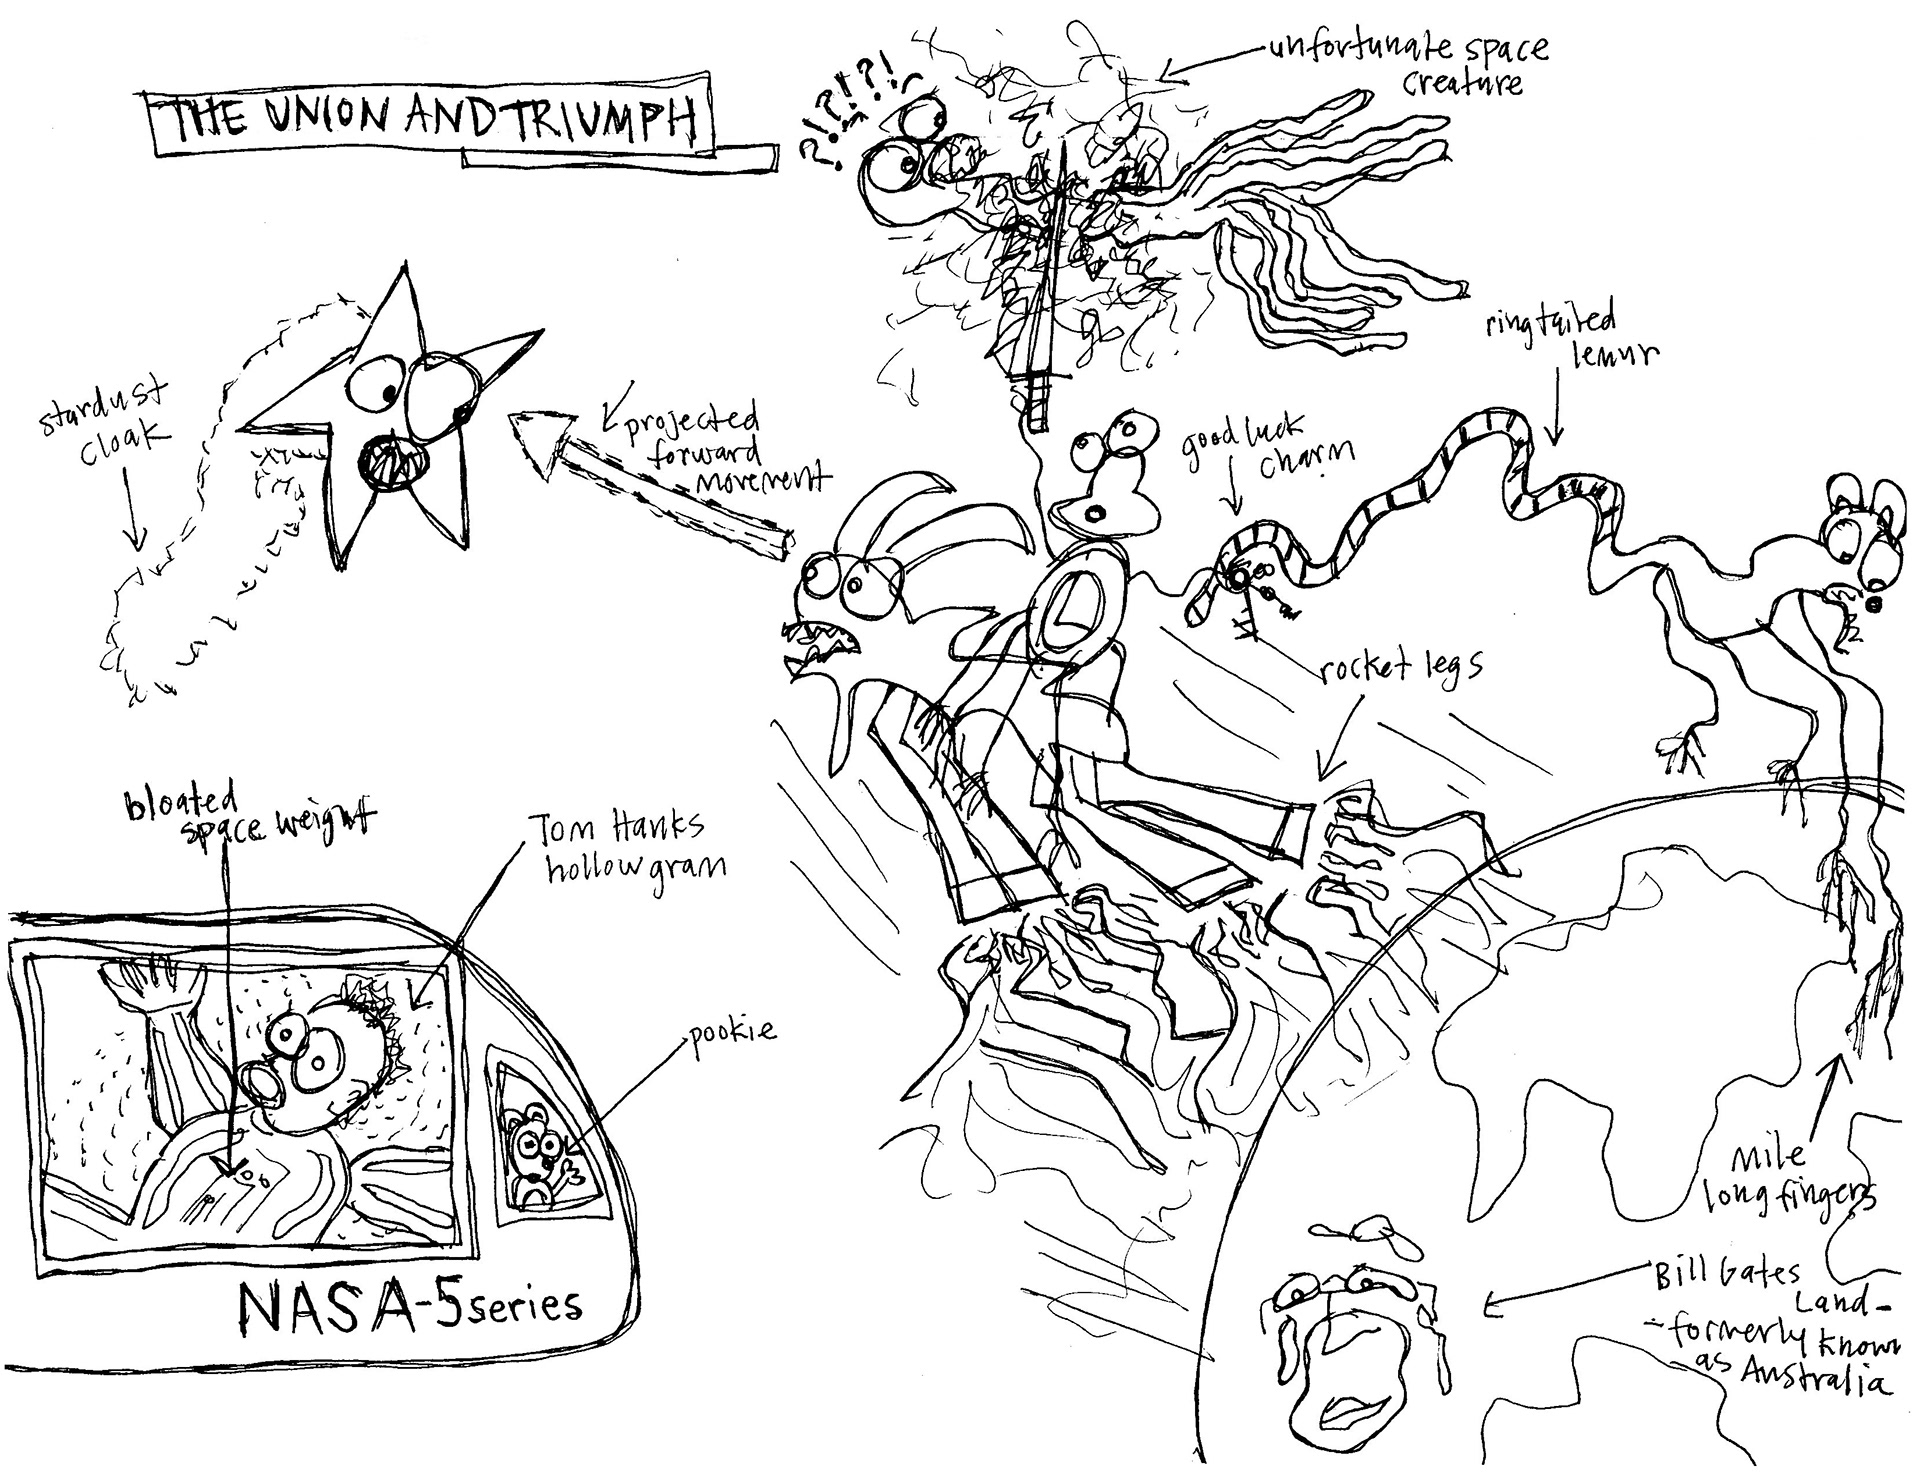 THE UNION AND TRIUMPH
?!?!?!
unfortunate space
creature
ringtailed
lemur
stardust
cloak
projected
forward
movement
good luck
charm
rocket legs
bloated
space weight
Tom Hanks
hollowgram
pookie
NASA-5series
Mile
long fingers
Bill Gates
Land-
-formerly known
as Australia